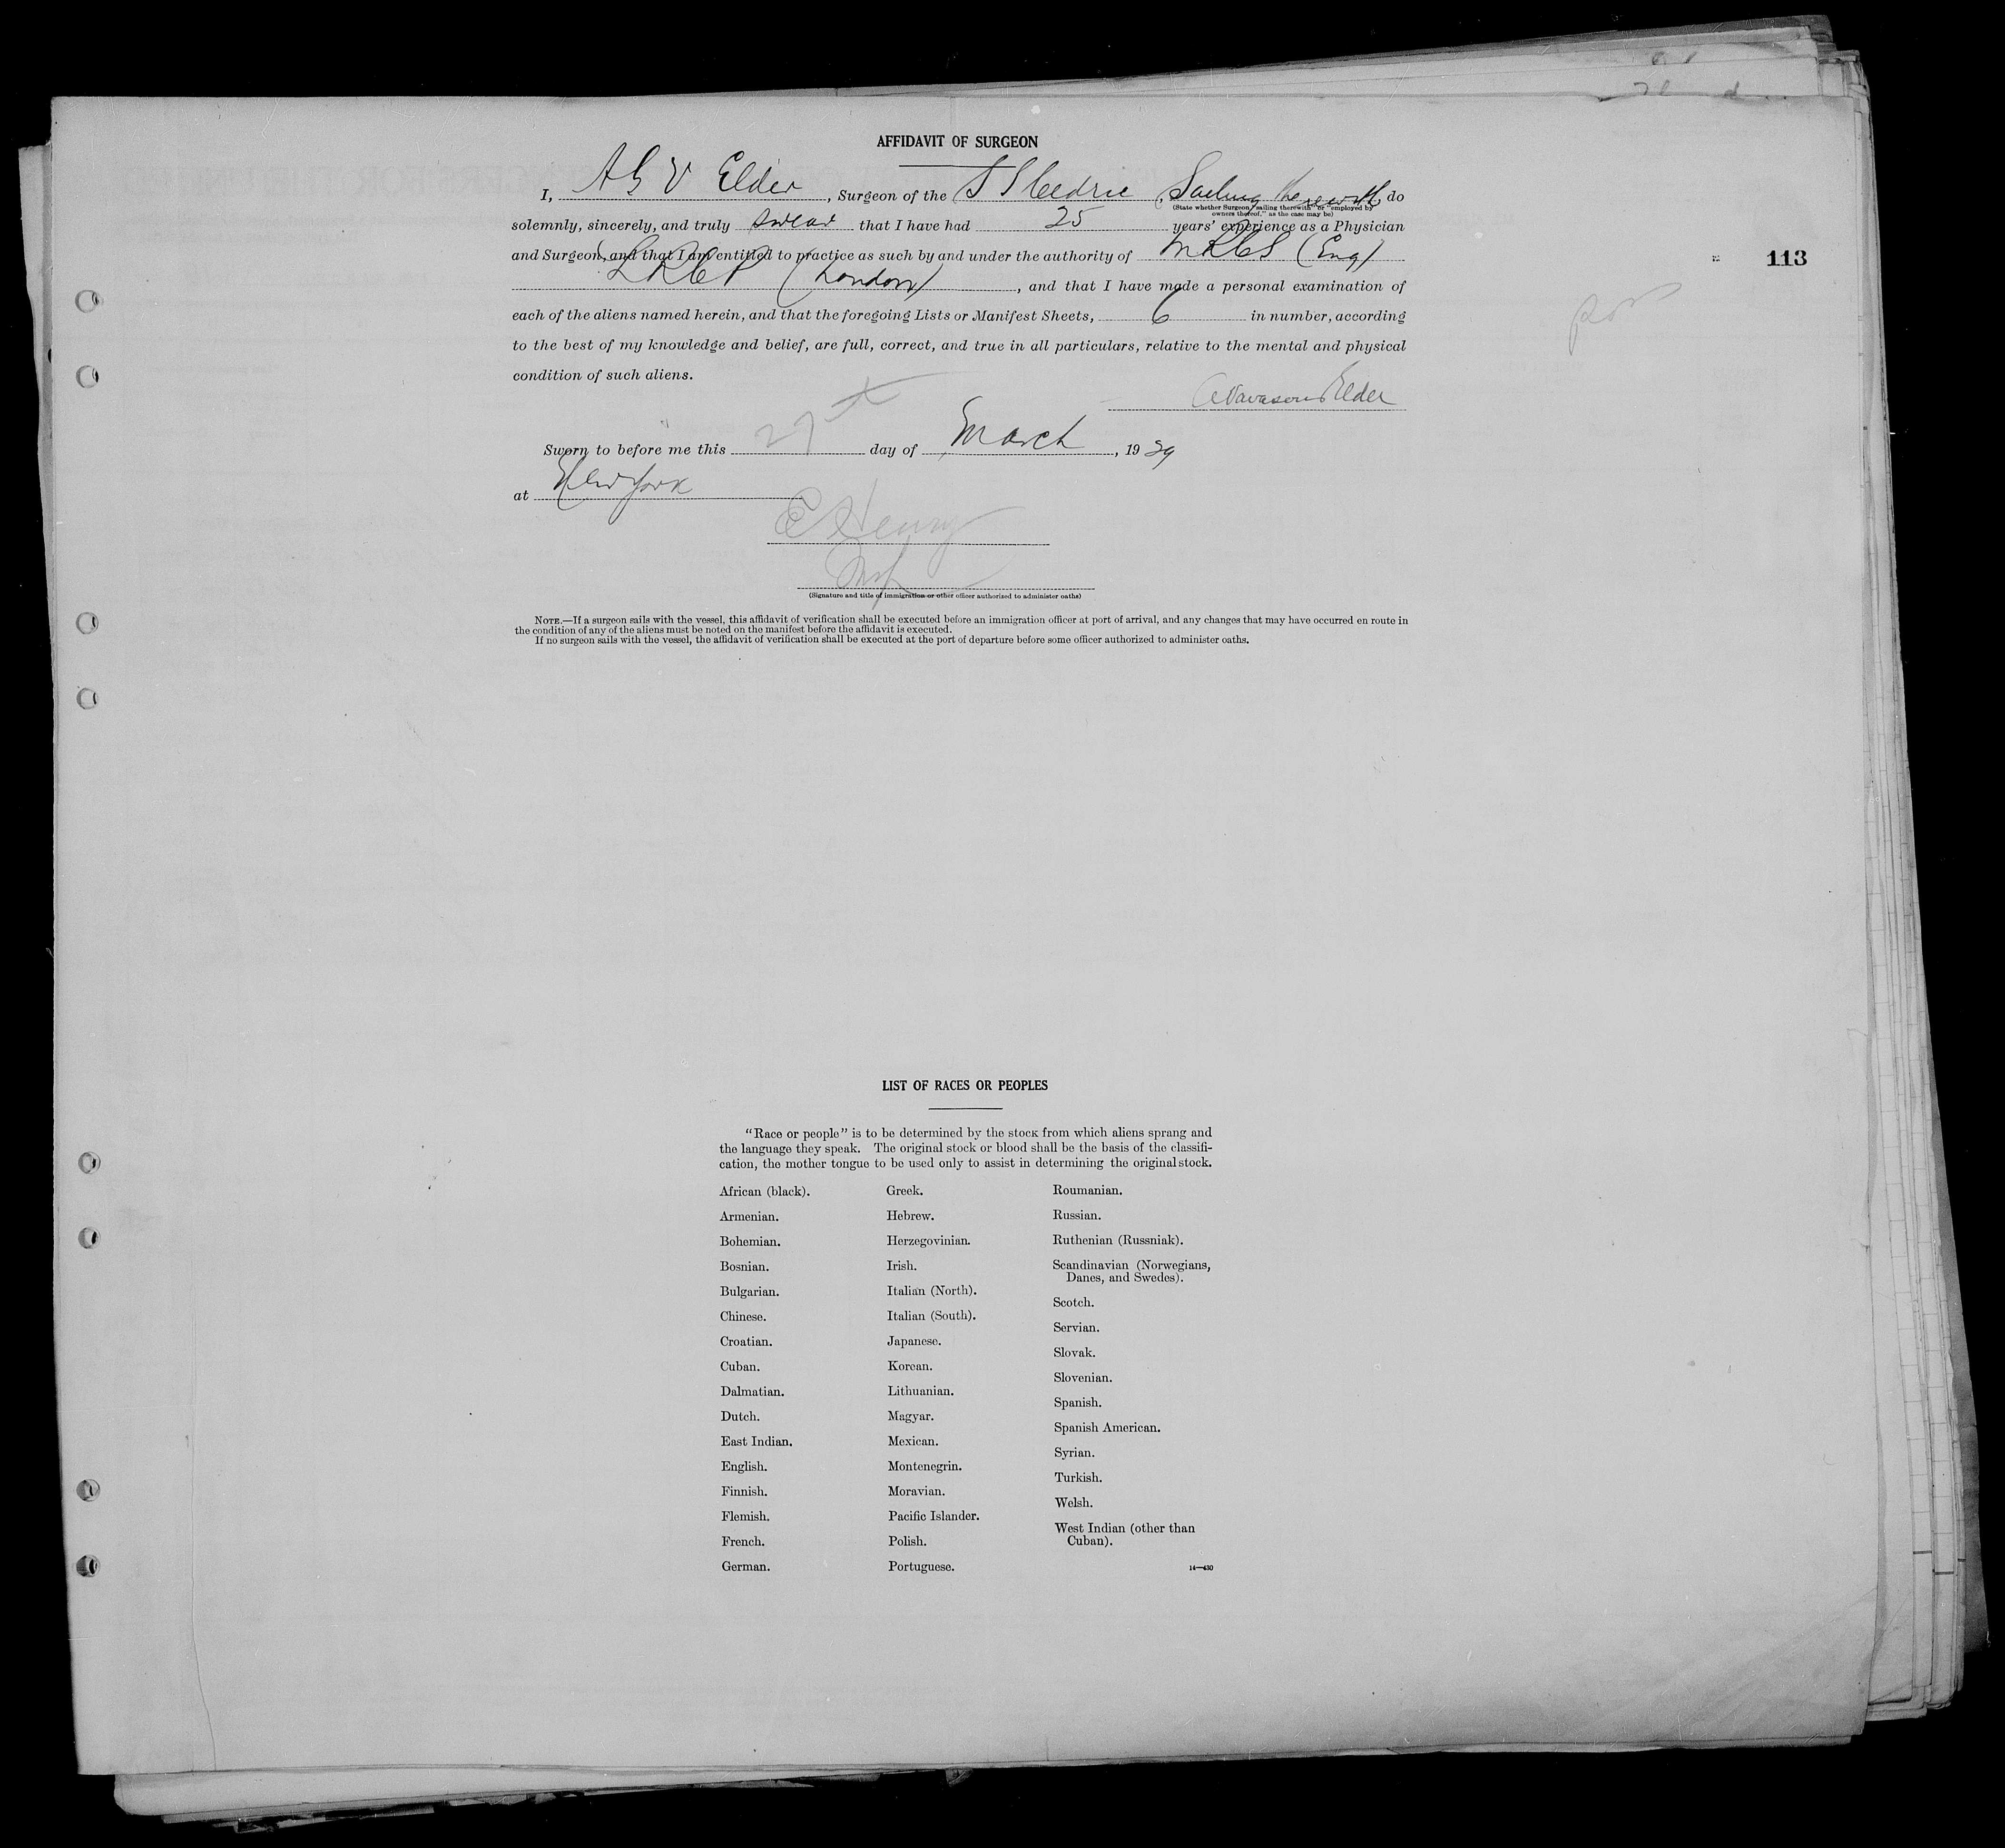 AFFIDAVIT OF SURGEON
I, A G V Elder, Surgeon of the S S Cedric, Sailing therewith, do
(State whether Surgeon "sailing therewith" or "employed by
owners thereof," as the case may be)
solemnly, sincerely, and truly swear that I have had 25 years' experience as a Physician
and Surgeon, and that I am entitled to practice as such by and under the authority of MRCS (Eng)
LRCP (London), and that I have made a personal examination of
each of the aliens named herein, and that the foregoing Lists or Manifest Sheets, 6 in number, according
to the best of my knowledge and belief, are full, correct, and true in all particulars, relative to the mental and physical
condition of such aliens.
Elder
Sworn to before me this 27th day of March, 1929
at New York
E Henry
Insp
(Signature and title of immigration or other officer authorized to administer oaths)
NOTE.—If a surgeon sails with the vessel, this affidavit of verification shall be executed before an immigration officer at port of arrival, and any changes that may have occurred en route in
the condition of any of the aliens must be noted on the manifest before the affidavit is executed.
If no surgeon sails with the vessel, the affidavit of verification shall be executed at the port of departure before some officer authorized to administer oaths.
113
LIST OF RACES OR PEOPLES
"Race or people" is to be determined by the stock from which aliens sprang and
the language they speak. The original stock or blood shall be the basis of the classifi-
cation, the mother tongue to be used only to assist in determining the original stock.
African (black).
Armenian.
Bohemian.
Bosnian.
Bulgarian.
Chinese.
Croatian.
Cuban.
Dalmatian.
Dutch.
East Indian.
English.
Finnish.
Flemish.
French.
German.
Greek.
Hebrew.
Herzegovinian.
Irish.
Italian (North).
Italian (South).
Japanese.
Korean.
Lithuanian.
Magyar.
Mexican.
Montenegrin.
Moravian.
Pacific Islander.
Polish.
Portuguese.
Roumanian.
Russian.
Ruthenian (Russniak).
Scandinavian (Norwegians,
Danes, and Swedes).
Scotch.
Servian.
Slovak.
Slovenian.
Spanish.
Spanish American.
Syrian.
Turkish.
Welsh.
West Indian (other than
Cuban).
14—430